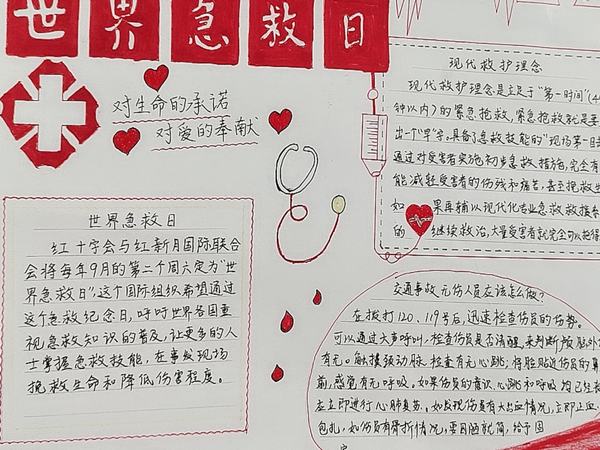 世界急救日
对生命的承诺
对爱的奉献
世界急救日
红十字会与红新月国际联合
会将每年9月的第二个周六定为“世
界急救日”,这个国际组织希望通过
这个急救纪念日,呼吁世界各国重
视急救知识的普及,让更多的人
士掌握急救技能,在事发现场
挽救生命和降低伤害程度。
现代救护理念
现代救护理念是立足于“第一时间”(4
钟以内)的紧急抢救,紧急抢救就是要
出一个“早”字。具备了急救技能的“现场第一目
通过对受害者实施初步急救措施,完全有
能减轻受害者的伤残和痛苦,甚至挽救生
如 果再辅以现代化专业急救
的 继续救治,大量受害者就完全可以把得
交通事故,无伤人员应该怎么做?
在拨打120、119号后,迅速检查伤员的伤势。
可以通过大声呼叫,检查伤员是否清醒,来判断
有无。触摸颈动脉,检查有无心跳;将脸贴近伤员的鼻
前,感觉有无呼吸。如果伤员的意识、心跳和呼吸均已
应立即进行心肺复苏。如发现伤员有大出血情况,立即止血
包扎,如伤员有骨折情况,要因陋就简,给予固
定